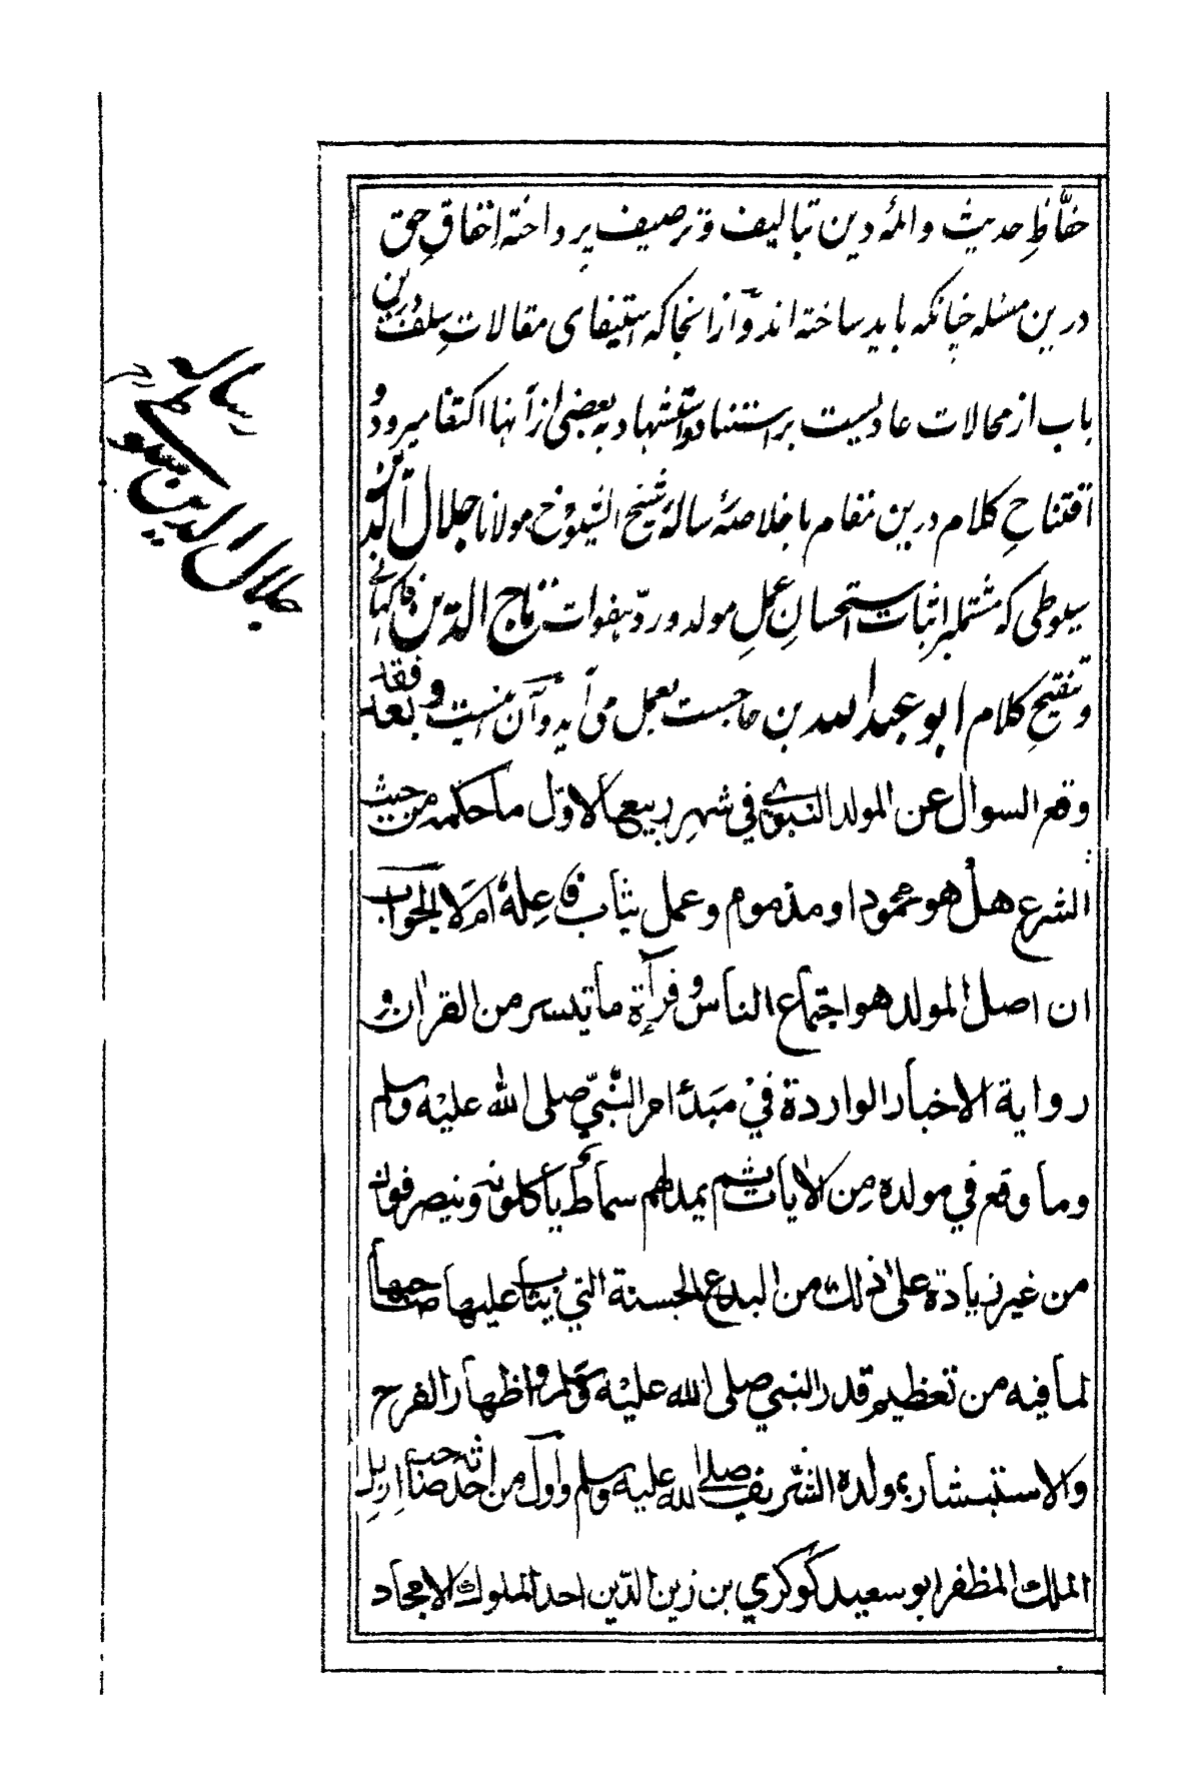 حفّاظِ حدیث و ائمهٔ دین بتالیف و ترصیف پرداخته اتفاقِ حق
درین مسئله چنانکه باید ساخته اند و از انجا که استیفای مقالات سلف درین
باب از محالات عادیست بر استناد و استشهاد به بعضی از آنها اکتفا میرود و
افتتاحِ کلام درین مقام با خلاصهٔ رسالهٔ شیخ الشیوخ مولانا جلال الدین
سیوطی که مشتمل بر اثبات استحسانِ عملِ مولد و ردّ هفوات تاج الدین فاکهانی
و تنقیحِ کلام ابو عبد الله بن حاجست بعمل می آید و آن اینست و بعد فقد
وقع السوال عن المولد النبوي في شهر ربيع الاول ما حكمه من حيث
الشرع هل هو محمود او مذموم و عمل يثاب فاعله ام لا الجواب
ان اصل المولد هو اجتماع الناس و قرآءة ما تيسر من القران و
رواية الاخبار الواردة في مبدأ امر النبيّ صلى الله عليه وسلم
وما وقع في مولده من الايات ثم يمد لهم سماط ياكلونه و ينصرفون
من غير زيادة على ذلك من البدع الحسنة التي يثاب عليها صاحبها
لما فيه من تعظيم قدر النبي صلى الله عليه وسلم و اظهار الفرح
والاستبشار بمولده الشريف صلى الله عليه وسلم و اول من احدثه صاحب اربل
الملك المظفر ابو سعيد كوكري بن زين الدين احد الملوك الامجاد
رساله
جلال الدین سیوطی